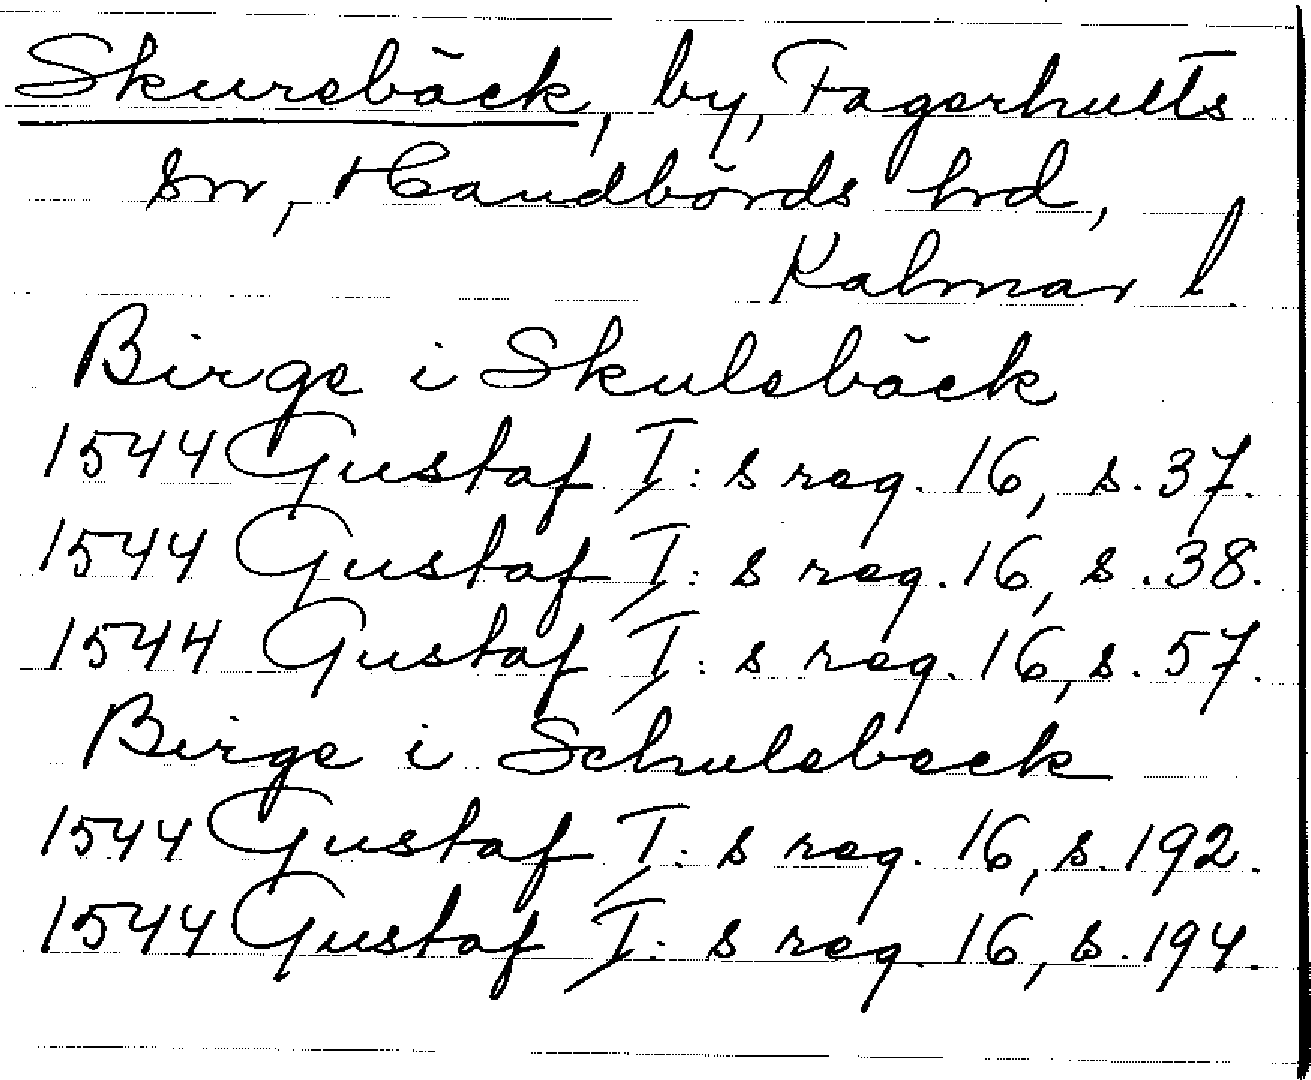 Skurebäck, by, Fagerhults
sn, Handbörds hrd,
Kalmar l.
Birge i Skulebäck
1544 Gustaf I:s reg. 16, s. 37.
1544 Gustaf I:s reg. 16, s. 38.
1544 Gustaf I:s reg. 16, s. 57.
Birge i Schulebeck
1544 Gustaf I:s reg. 16, s. 192.
1544 Gustaf I:s reg. 16, s. 194.